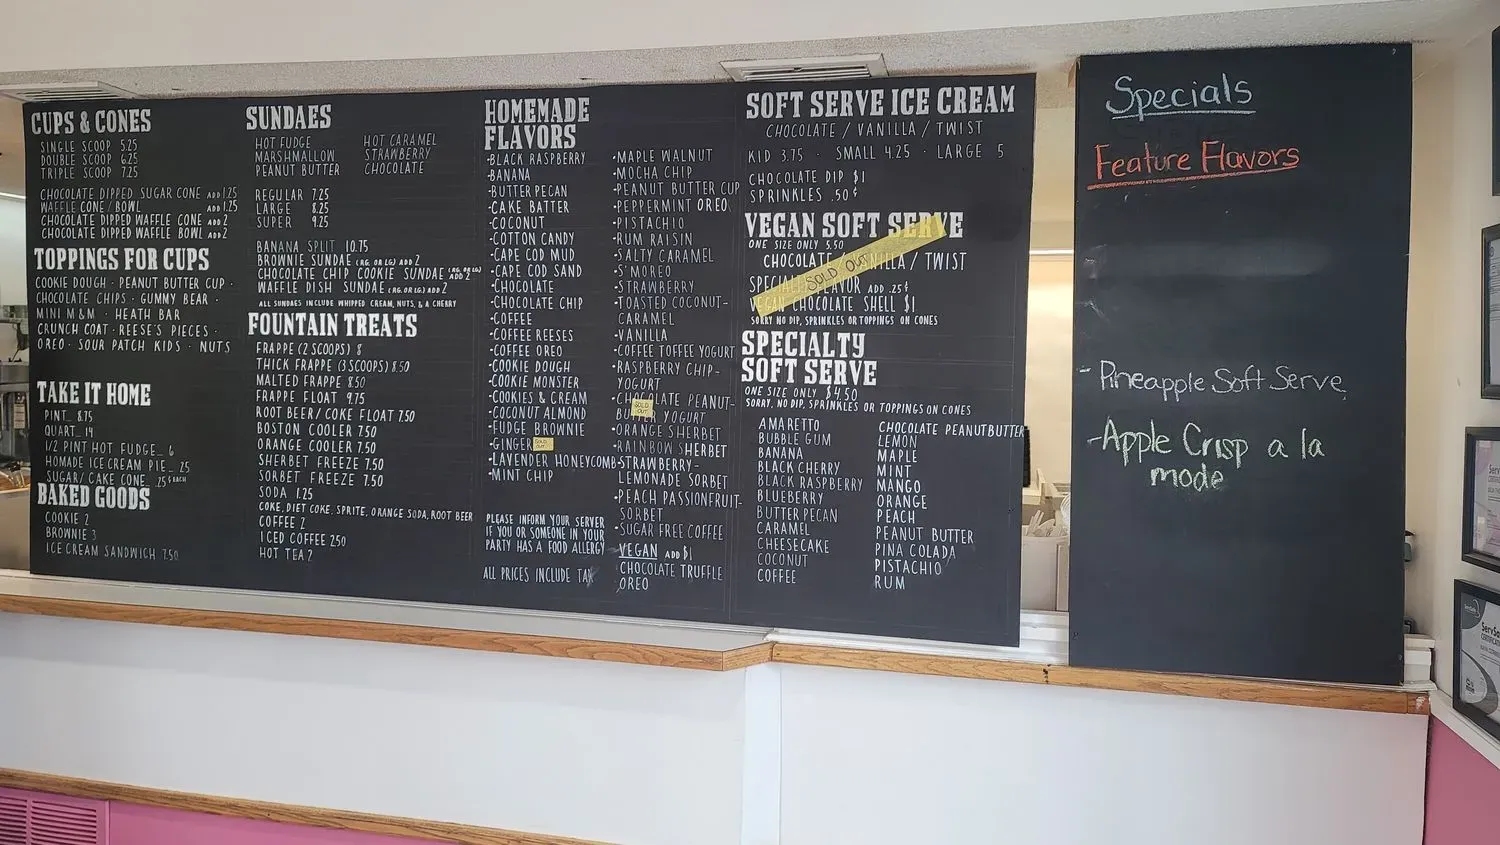 CUPS & CONES
SINGLE SCOOP 5.25
DOUBLE SCOOP 6.25
TRIPLE SCOOP 7.25
CHOCOLATE DIPPED SUGAR CONE ADD 1.25
WAFFLE CONE / BOWL ADD 1.25
CHOCOLATE DIPPED WAFFLE CONE ADD 2
CHOCOLATE DIPPED WAFFLE BOWL ADD 2
TOPPINGS FOR CUPS
COOKIE DOUGH · PEANUT BUTTER CUP ·
CHOCOLATE CHIPS · GUMMY BEAR ·
MINI M&M · HEATH BAR
CRUNCH COAT · REESE'S PIECES ·
OREO · SOUR PATCH KIDS · NUTS
TAKE IT HOME
PINT_ 8.75
QUART_ 14
1/2 PINT HOT FUDGE_ 6
HOMADE ICE CREAM PIE_ 25
SUGAR/ CAKE CONE_ .25 ¢ EACH
BAKED GOODS
COOKIE 2
BROWNIE 3
ICE CREAM SANDWICH 7.50
SUNDAES
HOT FUDGE HOT CARAMEL
MARSHMALLOW STRAWBERRY
PEANUT BUTTER CHOCOLATE
REGULAR 7.25
LARGE 8.25
SUPER 9.25
BANANA SPLIT 10.75
BROWNIE SUNDAE (RG. OR LG) ADD 2
CHOCOLATE CHIP COOKIE SUNDAE (RG. OR LG) ADD 2
WAFFLE DISH SUNDAE (RG. OR LG) ADD 2
ALL SUNDAES INCLUDE WHIPPED CREAM, NUTS, & A CHERRY
FOUNTAIN TREATS
FRAPPE (2 SCOOPS) 8
THICK FRAPPE (3 SCOOPS) 8.50
MALTED FRAPPE 8.50
FRAPPE FLOAT 9.75
ROOT BEER / COKE FLOAT 7.50
BOSTON COOLER 7.50
ORANGE COOLER 7.50
SHERBET FREEZE 7.50
SORBET FREEZE 7.50
SODA 1.25
COKE, DIET COKE, SPRITE, ORANGE SODA, ROOT BEER
COFFEE 2
ICED COFFEE 2.50
HOT TEA 2
HOMEMADE
FLAVORS
•BLACK RASPBERRY
•BANANA
•BUTTER PECAN
•CAKE BATTER
•COCONUT
•COTTON CANDY
•CAPE COD MUD
•CAPE COD SAND
•CHOCOLATE
•CHOCOLATE CHIP
•COFFEE
•COFFEE REESES
•COFFEE OREO
•COOKIE DOUGH
•COOKIE MONSTER
•COOKIES & CREAM
•COCONUT ALMOND
•FUDGE BROWNIE
•GINGER SOLD OUT
•LAVENDER HONEYCOMB
•MINT CHIP
PLEASE INFORM YOUR SERVER
IF YOU OR SOMEONE IN YOUR
PARTY HAS A FOOD ALLERGY
ALL PRICES INCLUDE TAX
•MAPLE WALNUT
•MOCHA CHIP
•PEANUT BUTTER CUP
•PEPPERMINT OREO
•PISTACHIO
•RUM RAISIN
•SALTY CARAMEL
•S'MOREO
•STRAWBERRY
•TOASTED COCONUT-
CARAMEL
•VANILLA
•COFFEE TOFFEE YOGURT
•RASPBERRY CHIP-
YOGURT
•CHOCOLATE PEANUT-
BUTTER YOGURT
SOLD OUT
•ORANGE SHERBET
•RAINBOW SHERBET
•STRAWBERRY-
LEMONADE SORBET
•PEACH PASSIONFRUIT-
SORBET
•SUGAR FREE COFFEE
VEGAN ADD $1
CHOCOLATE TRUFFLE
OREO
SOFT SERVE ICE CREAM
CHOCOLATE / VANILLA / TWIST
KID 3.75 · SMALL 4.25 · LARGE 5
CHOCOLATE DIP $1
SPRINKLES .50¢
VEGAN SOFT SERVE
ONE SIZE ONLY 5.50
CHOCOLATE / VANILLA / TWIST
SOLD OUT
SPECIALTY FLAVOR ADD .25¢
VEGAN CHOCOLATE SHELL $1
SORRY NO DIP, SPRINKLES OR TOPPINGS ON CONES
SPECIALTY
SOFT SERVE
ONE SIZE ONLY $4.50
SORRY, NO DIP, SPRINKLES OR TOPPINGS ON CONES
AMARETTO
BUBBLE GUM
BANANA
BLACK CHERRY
BLACK RASPBERRY
BLUEBERRY
BUTTER PECAN
CARAMEL
CHEESECAKE
COCONUT
COFFEE
CHOCOLATE PEANUTBUTTER
LEMON
MAPLE
MINT
MANGO
ORANGE
PEACH
PEANUT BUTTER
PINA COLADA
PISTACHIO
RUM
Specials
Feature Flavors
- Pineapple Soft Serve
- Apple Crisp a la
mode